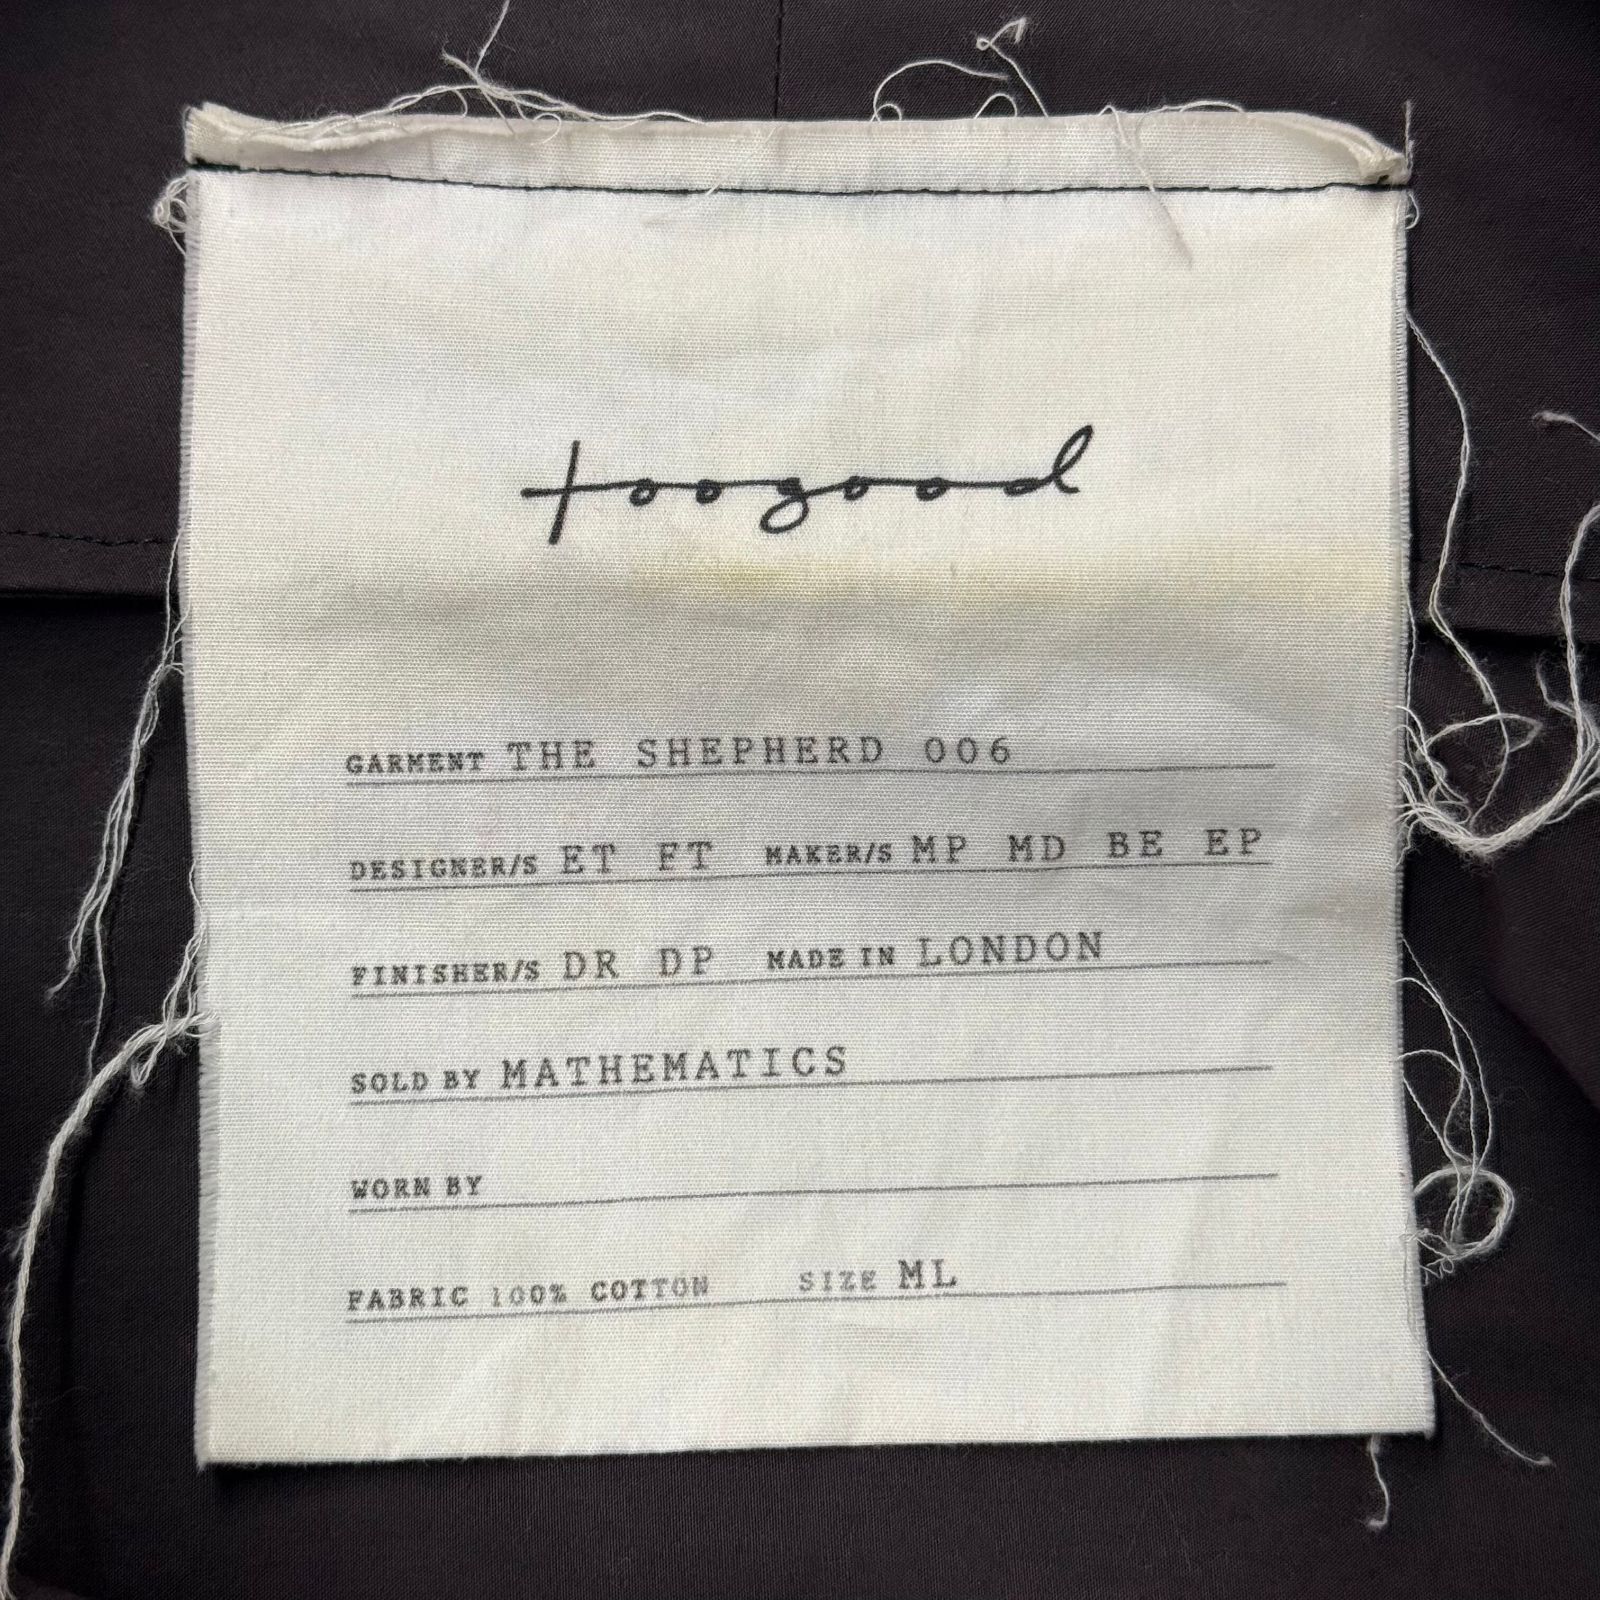 toogood
GARMENT THE SHEPHERD 006
DESIGNER/S ET FT MAKER/S MP MD BE EP
FINISHER/S DR DP MADE IN LONDON
SOLD BY MATHEMATICS
WORN BY
FABRIC 100% COTTON SIZE ML